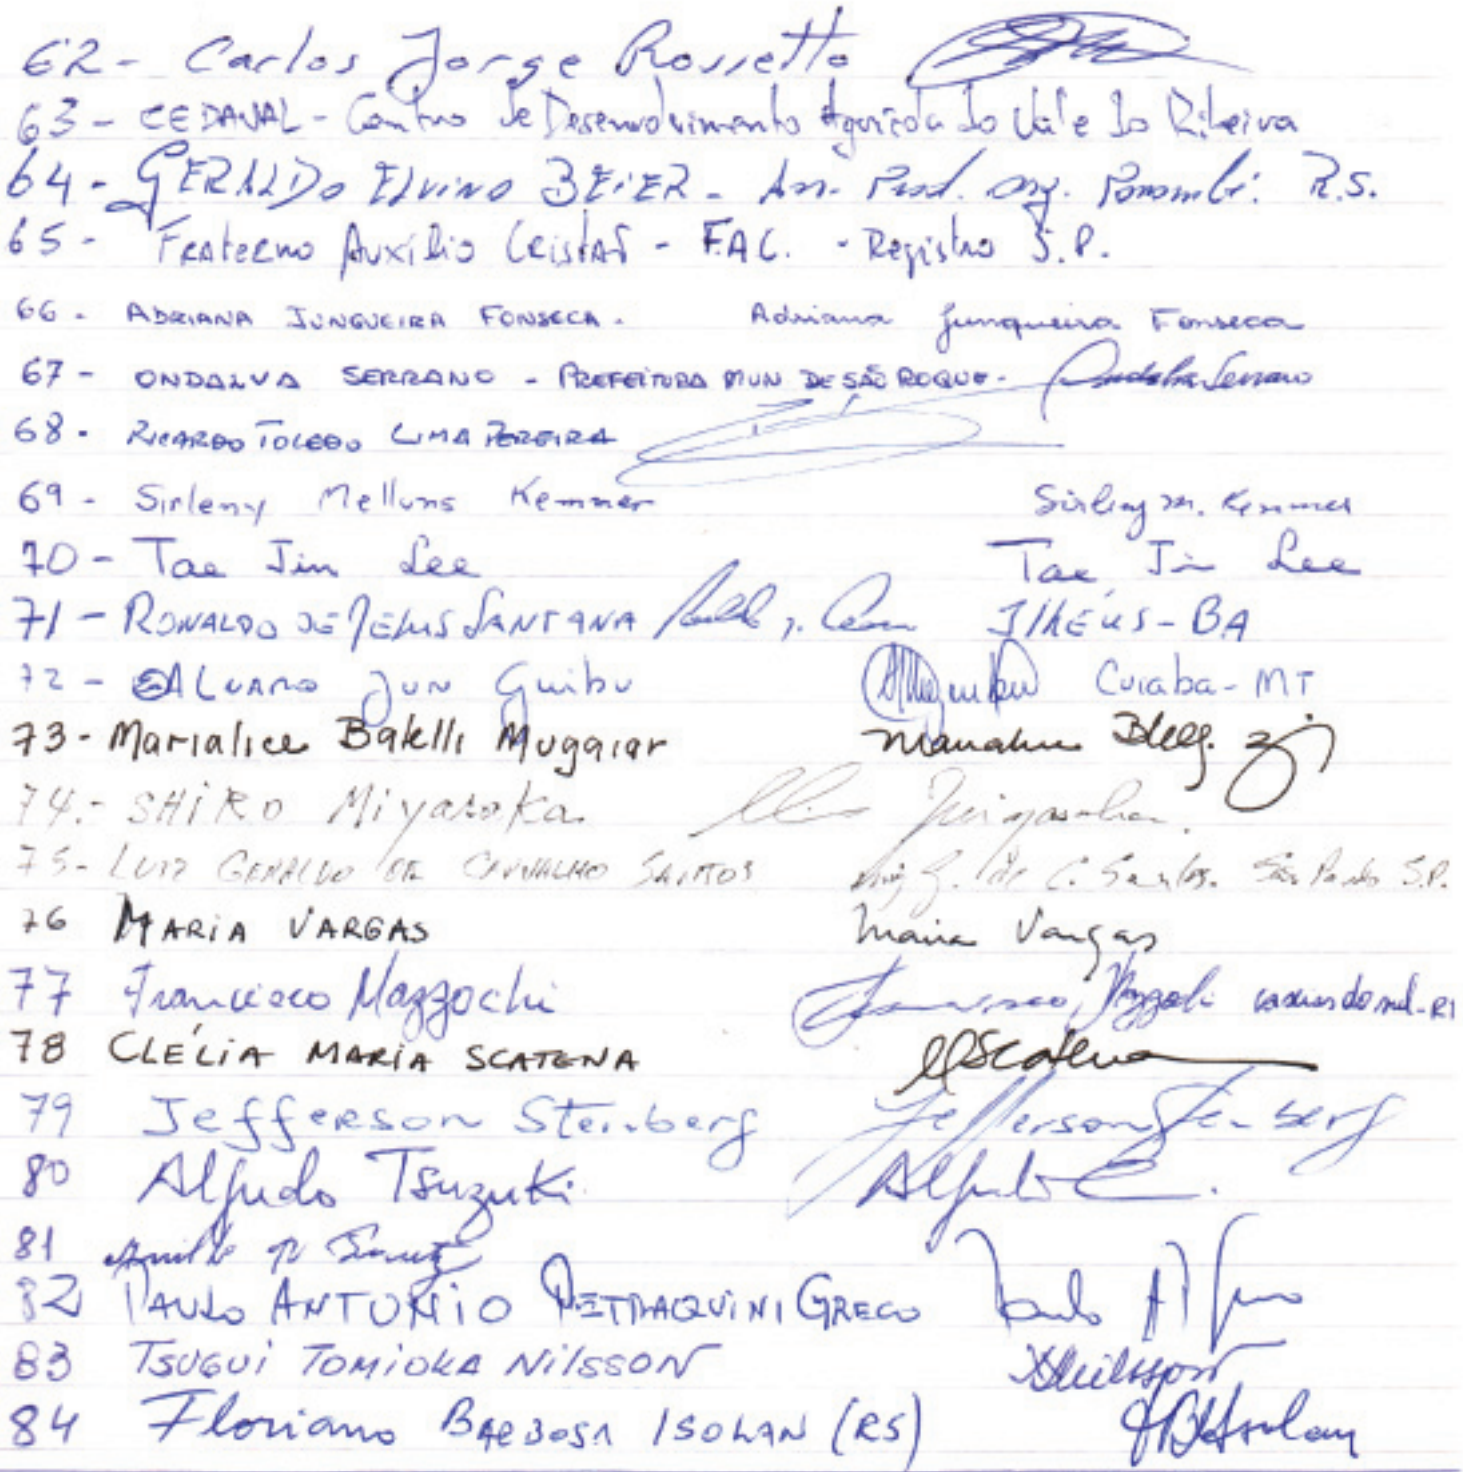 62- Carlos Jorge Rossetto
63- CEDAVAL - Centro de Desenvolvimento Agrícola do Vale do Ribeira
64- GERALDO ELVINO BEIER - Ass. Prod. Org. R.S.
65- FRATERNO AUXÍLIO CRISTÃO - F.A.C. - Registro S.P.
66- ADRIANA JUNQUEIRA FONSECA. Adriana Junqueira Fonseca
67- ONDALVA SERRANO - PREFEITURA MUN DE SÃO ROQUE - Ondalva Serrano
68- RICARDO TOLEDO LIMA PEREIRA
69- Sirleny Kemmer Sirleny M. Kemmer
70- Tae Jin Lee Tae Jin Lee
71- RONALDO DE JESUS SANTANA ILHÉUS - BA
72- ALVARO JUN Guibu Cuiaba - MT
73- Marialice Batelli Mugaiar
74.- SHIRO Miyasaka Miyasaka
75- LUIZ GERALDO DE CARVALHO SANTOS Luiz G. de C. Santos. São Paulo S.P.
76 MARIA VARGAS Maria Vargas
77 Francisco Mazzochi Francisco Mazzochi caxias do sul - RS
78 CLÉLIA MARIA SCATENA CScatena
79 Jefferson Steinberg Jefferson Steinberg
80 Alfredo Tsuzuki Alfredo
81
82 PAULO ANTONIO PETRAQUINI GRECO Paulo
83 TSUGUI TOMIOKA NILSSON Nilsson
84 Floriano BARBOSA ISOLAN (RS) FBIsolan